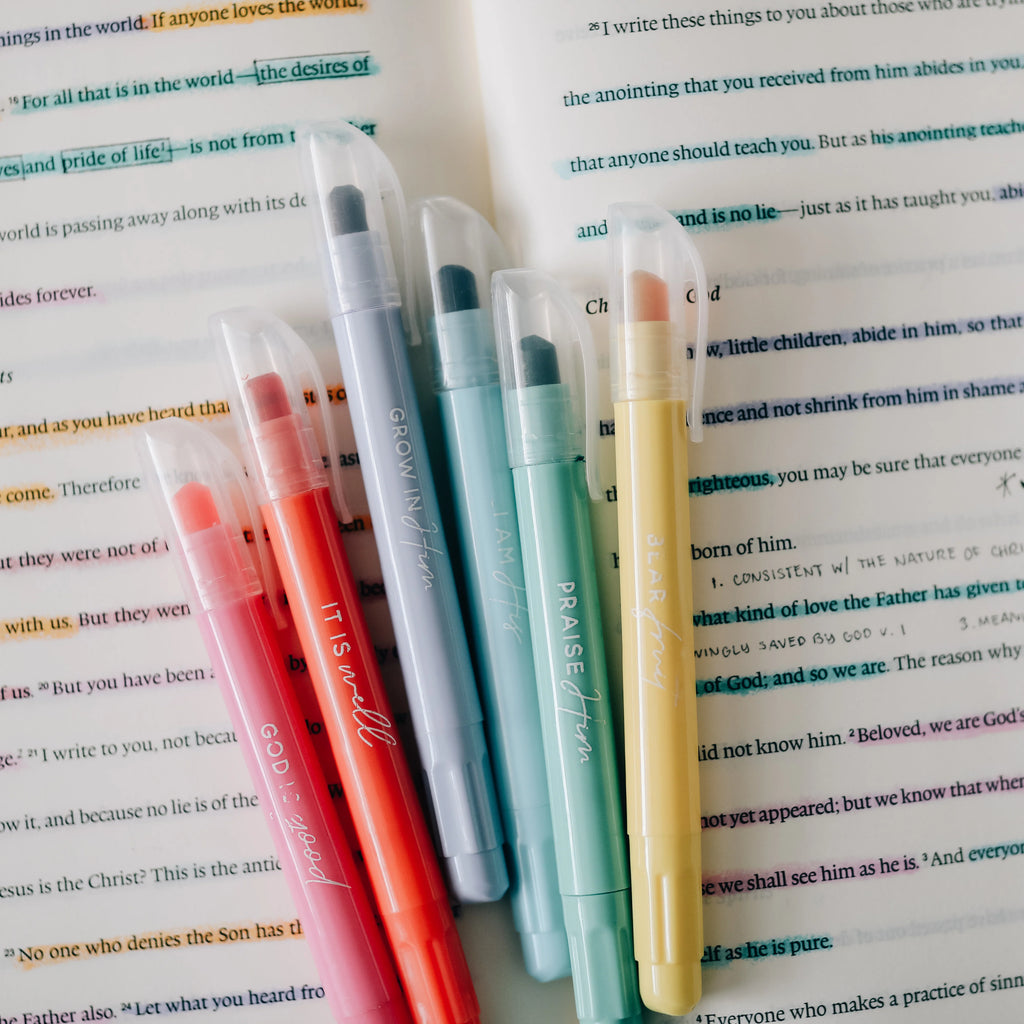 things in the world. If anyone loves the world,
¹⁶ For all that is in the world—the desires of
and pride of life¹—is not from
world is passing away along with its
ides forever.
and as you have heard that
come. Therefore
but they were not of
with us. But they
of us. ²⁰ But you have been
²¹ I write to you, not
know it, and because no lie is of the
Jesus is the Christ? This is the
²³ No one who denies the Son has
the Father also. ²⁴ Let what you heard
²⁶ I write these things to you about those who are
the anointing that you received from him abides in you,
that anyone should teach you. But as his anointing
and and is no lie—just as it has taught you,
God
little children, abide in him, so that
and not shrink from him in shame
righteous, you may be sure that everyone
born of him.
1. CONSISTENT W/ THE NATURE OF
what kind of love the Father has given
SAVED BY GOD V. 1 3.
of God; and so we are. The reason why
did not know him. ² Beloved, we are God's
not yet appeared; but we know that
we shall see him as he is. ³ And
as he is pure.
⁴ Everyone who makes a practice of
GOD IS good
IT IS well
GROW IN Him
I AM His
PRAISE Him